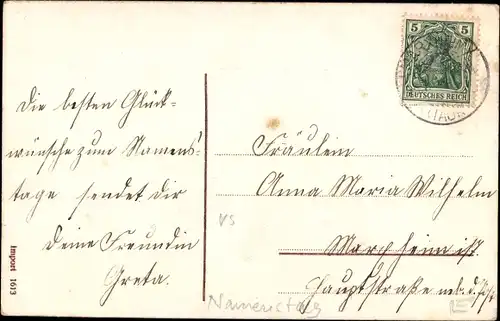 Die besten Glück-
wünsche zum Namens-
tage sendet dir
Deine Freundin
Greta.
Import 1613
5 5
DEUTSCHES REICH
(TAUN
Fräulein
Anna Maria Wilhelm
VS
Hauptstraße neb. d.
Namenstag